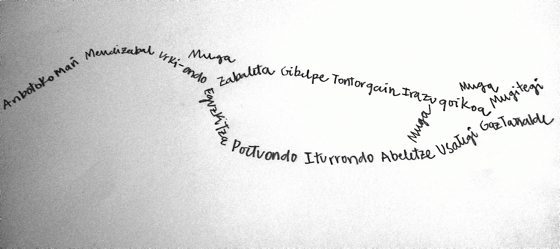 Anbotoko Mari Mendizabal Urki-ondo
Muga
Zabaleta Gibelpe Tontorgain Irazu goikoa
Muga
Mugitegi
Eguzkitza
Poltuondo Iturrondo Abeletze Usategi Gaztanalde
Muga